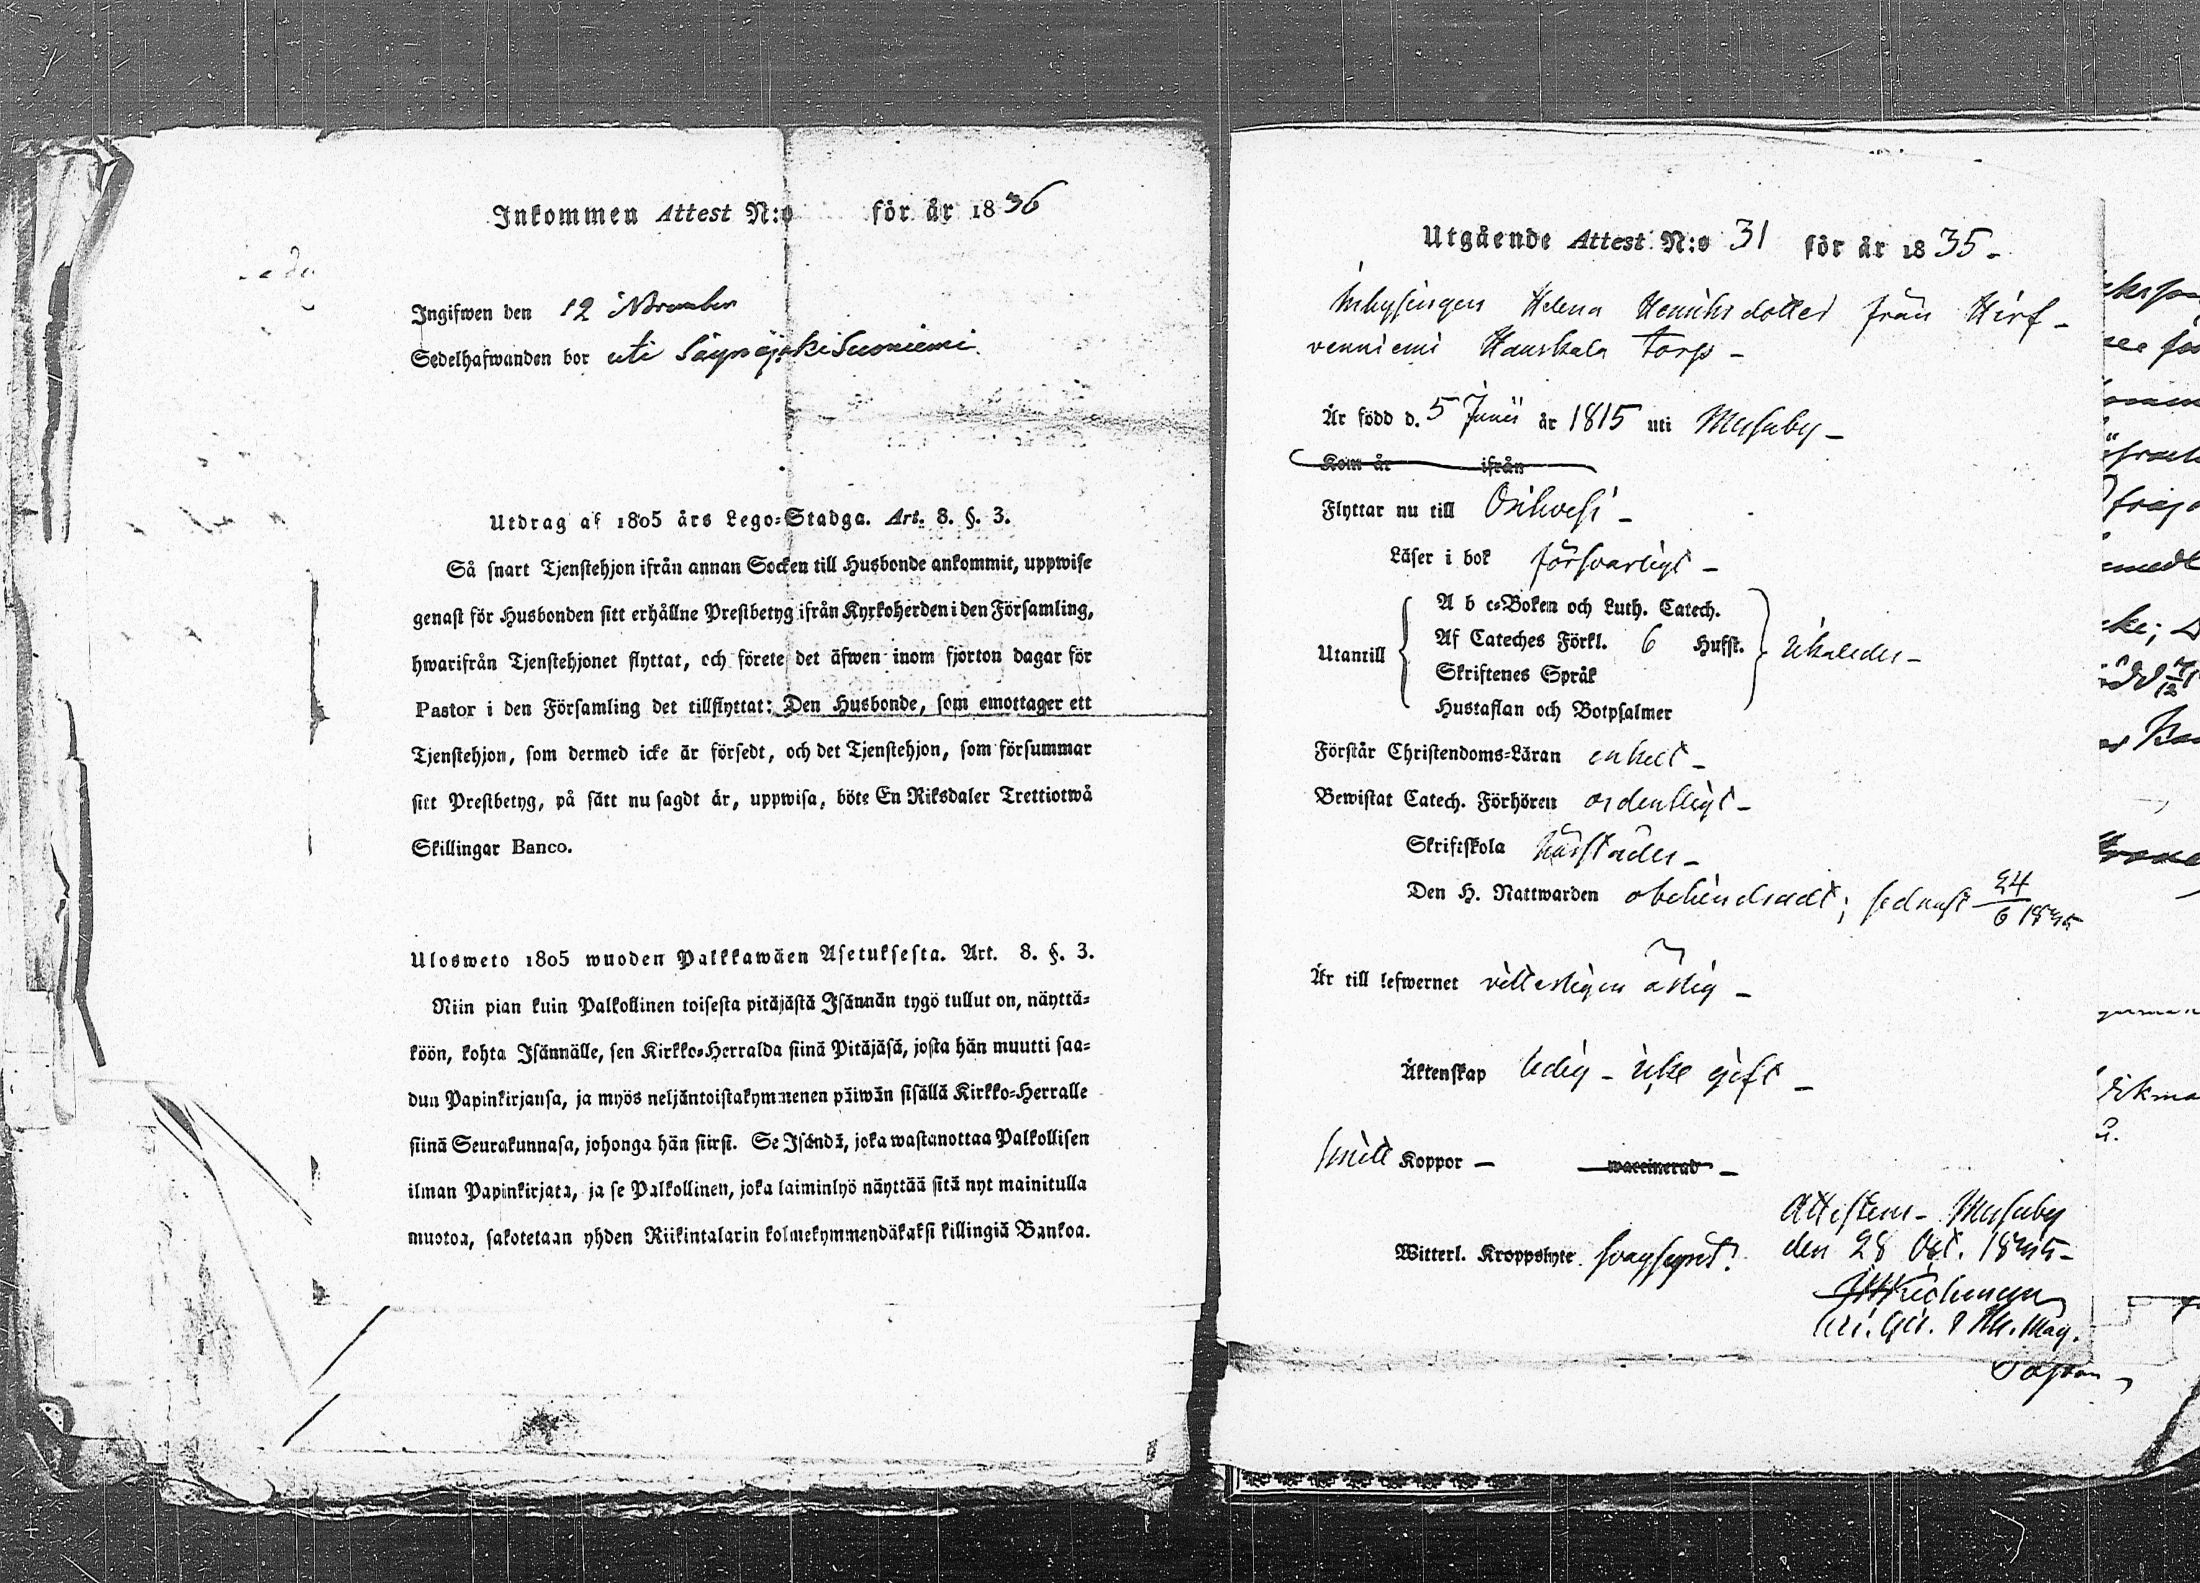 Inkommen Attest N:o för år 1836
Ingifwen den 12 November
Sedelhafwanden bor uti Säynäjoki Suoniemi.
Utdrag af 1805 års Lego-Stadga. Art. 8. §. 3.
Så snart Tjenstehjon ifrån annan Socken till Husbonde ankommit, uppwise
genast för Husbonden sitt erhållne Prestbetyg ifrån Kyrkoherden i den Församling,
hwarifrån Tjenstehjonet flyttat, och förete det äfwen inom fjorton dagar för
Pastor i den Församling det tillflyttat: Den Husbonde, som emottager ett
Tjenstehjon, som dermed icke är försedt, och det Tjenstehjon, som försummar
sitt Prestbetyg, på sätt nu sagdt är, uppwisa, böte En Riksdaler Trettiotwå
Skillingar Banco.
Ulosweto 1805 wuoden Palkkawäen Asetuksesta. Art. 8. §. 3.
Niin pian kuin Palkollinen toisesta pitäjästä Isännän tygö tullut on, näyttä-
köön, kohta Isännälle, sen Kirkko-Herralda siinä Pitäjäsä, josta hän muutti saa-
dun Papinkirjansa, ja myös neljäntoistakymmenen päiwän sisällä Kirkko-Herralle
siinä Seurakunnasa, johonga hän siirsi. Se Isändä, joka wastanottaa Palkollisen
ilman Papinkirjata, ja se Palkollinen, joka laiminlyö näyttää sitä nyt mainitulla
muotoa, sakotetaan yhden Riikintalarin kolmekymmendäkaksi killingiä Bankoa.
Utgående Attest N:o 31 för år 1835 -
Inhysingen Helena Henriksdotter från Hirf-
venniemi Hauskala torp -
Är född d. 5 Junii år 1815 uti Messuby -
Kom år ifrån
Flyttar nu till Orihvesi -
Läser i bok försvarligt -
A b c-Boken och Luth. Catech.
Utantill Af Cateches Förkl. 6 Hufst. likaledes -
Skriftenes Språk
Hustaflan och Botpsalmer
Förstår Christendoms-Läran enkelt -
Bewistat Catech. Förhören ordentligt -
Skriftskola
Den H. Nattwarden obehindradt; sednast 24/6 1835
Är till lefwernet vitterligen ärlig -
Äktenskap ledig - icke gift -
haft Koppor - waccinerad -
Witterl. Kroppslyte svagsynt.
Attesteras - Messuby
den 28 Oct. 1835 -
Pastor